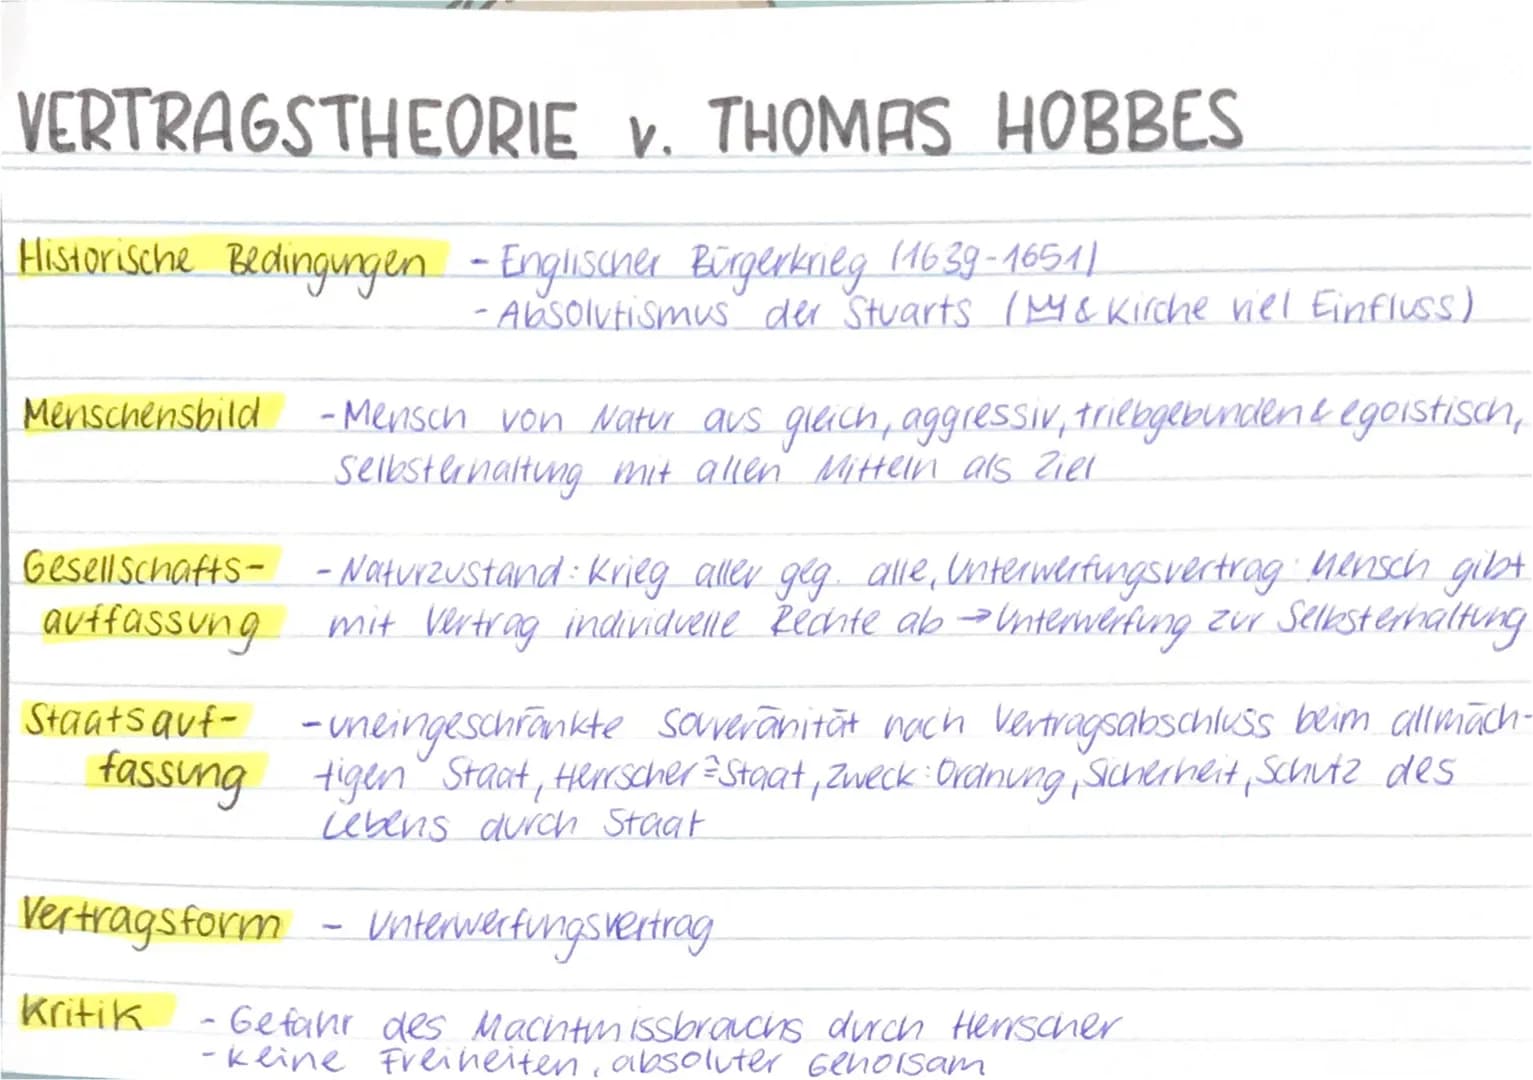 VERTRAGSTHEORIE v. THOMAS HOBBES
Historische Bedingungen - Englischer Bürgerkrieg (1639-1651)
- Absolutismus der Stuarts ( & Kirche viel Einfluss)
Menschensbild - Mensch von Natur aus gleich, aggressiv, triebgebunden & egoistisch,
Selbsterhaltung mit allen Mitteln als Ziel
Gesellschafts- - Naturzustand: Krieg aller geg. alle, Unterwerfungsvertrag: Mensch gibt
auffassung mit Vertrag individuelle Rechte ab → Unterwerfung zur Selbsterhaltung
Staatsauf- - uneingeschränkte Souveränität nach Vertragsabschluss beim allmäch-
fassung tigen Staat, Herrscher ≙ Staat, Zweck: Ordnung, Sicherheit, Schutz des
Lebens durch Staat
Vertragsform - Unterwerfungsvertrag
Kritik - Gefahr des Machtmissbrauchs durch Herrscher
- Keine Freiheiten, absoluter Gehorsam